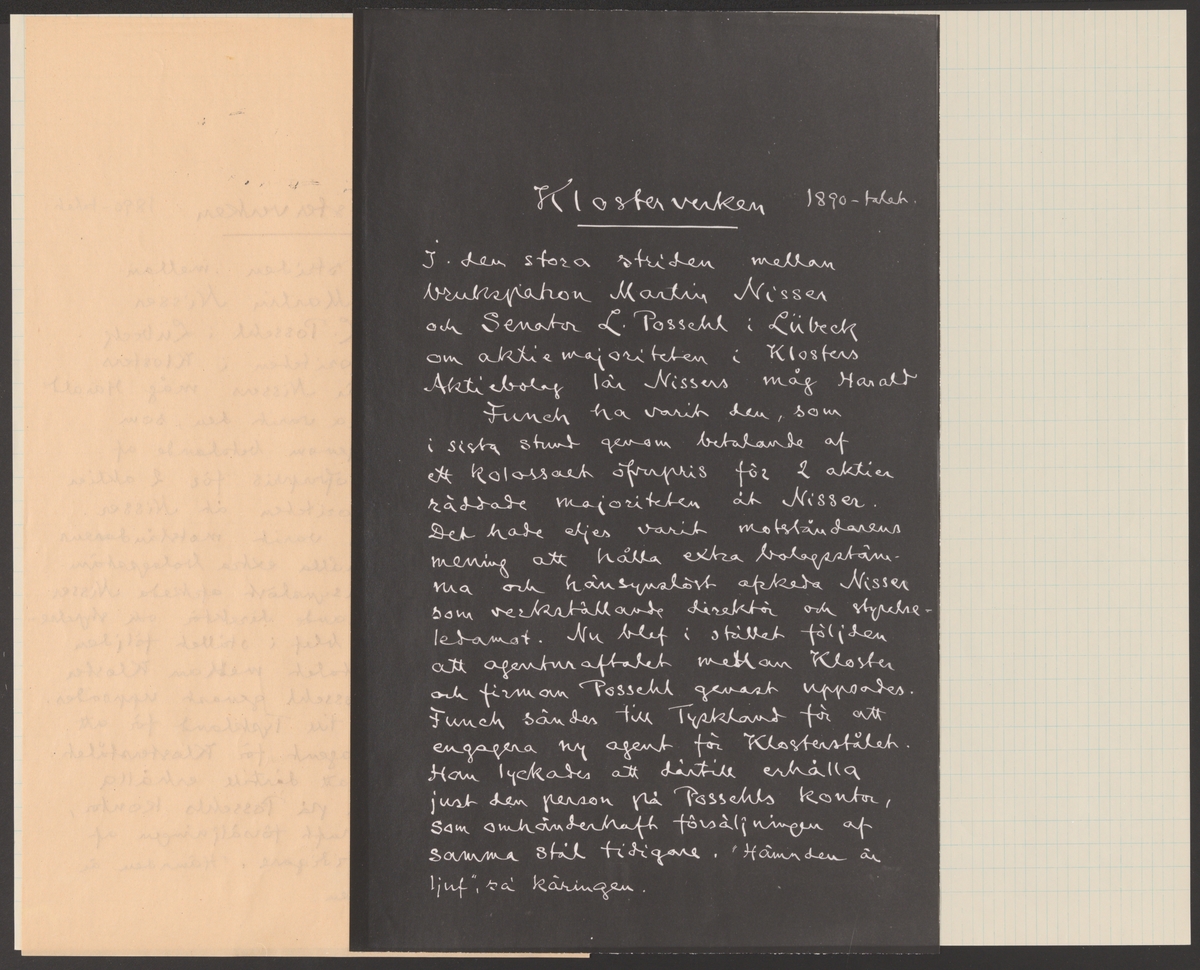 Klosterverken 1890-talet.
I den stora striden mellan
brukspatron Martin Nisser
och Senator L. Possehl i Lübeck
om aktiemajoriteten i Klosters
Aktiebolag lär Nissers måg Harald
Funch ha varit den, som
i sista stund genom betalande af
ett kolossalt öfverpris för 2 aktier
räddade majoriteten åt Nisser.
Det hade eljes varit motståndarens
mening att hålla extra bolagsstäm-
ma och hänsynslöst afskeda Nisser
som verkställande direktör och styrelse-
ledamot. Nu blef i stället följden
att agenturaftalet mellan Kloster
och firman Possehl genast uppsades.
Funch sändes till Tyskland för att
engagera ny agent för Klosterstålet.
Han lyckades att därtill erhålla
just den person på Possehls kontor,
som omhänderhaft försäljningen af
samma stål tidigare. "Hämnden är
ljuf", sa' käringen.